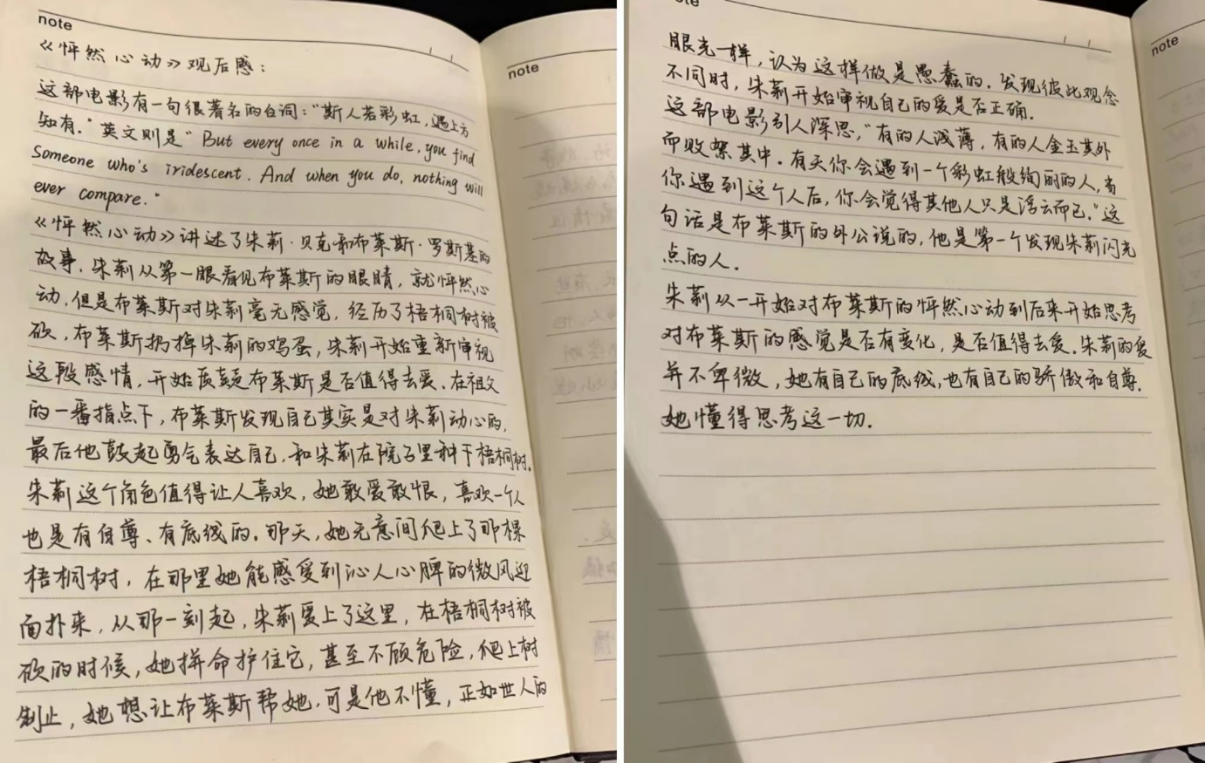 note
《怦然心动》观后感：
这部电影有一句很著名的台词："斯人若彩虹，遇上方
知有。"英文则是"But every once in a while, you find
Someone who's iridescent. And when you do, nothing will
ever compare."
《怦然心动》讲述了朱莉·贝克和布莱斯·罗斯基的
故事，朱莉从第一眼看见布莱斯的眼睛，就怦然心
动，但是布莱斯对朱莉毫无感觉，经历了梧桐树被
砍，布莱斯扔掉朱莉的鸡蛋，朱莉开始重新审视
这段感情，开始质疑布莱斯是否值得去爱。在祖父
的一番指点下，布莱斯发现自己其实是对朱莉动心的，
最后他鼓起勇气表达自己，和朱莉在院子里种下梧桐树。
朱莉这个角色值得让人喜欢，她敢爱敢恨，喜欢一个人
也是有自尊、有底线的。那天，她无意间爬上了那棵
梧桐树，在那里她能感受到沁人心脾的微风迎
面扑来，从那一刻起，朱莉爱上了这里，在梧桐树被
砍的时候，她拼命护住它，甚至不顾危险，爬上树
制止，她想让布莱斯帮她，可是他不懂，正如世人的
note
note
眼光一样，认为这样做是愚蠢的。发现彼此观念
不同时，朱莉开始审视自己的爱是否正确。
这部电影引人深思，"有的人浅薄，有的人金玉其外
而败絮其中。有天你会遇到一个彩虹般绚丽的人，当
你遇到这个人后，你会觉得其他人只是浮云而已。"这
句话是布莱斯的外公说的，他是第一个发现朱莉闪光
点的人。
朱莉从一开始对布莱斯的怦然心动到后来开始思考
对布莱斯的感觉是否有变化，是否值得去爱。朱莉的爱
并不卑微，她有自己的底线，也有自己的骄傲和自尊。
她懂得思考这一切。
note